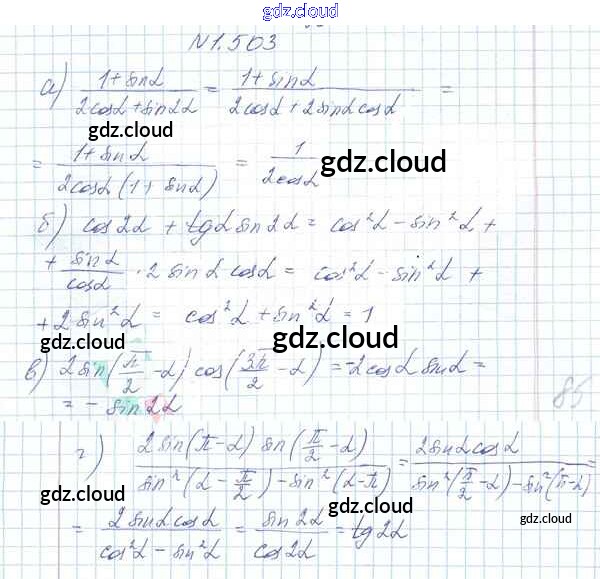 gdz.cloud
N1.503
а) (1+sinα)/(2cosα+sin2α) = (1+sinα)/(2cosα+2sinαcosα) =
gdz.cloud gdz.cloud
= (1+sinα)/(2cosα(1+sinα)) = 1/(2cosα)
б) cos2α + tgα sin2α = cos²α − sin²α +
+ sinα/cosα · 2 sinα cosα = cos²α − sin²α +
+ 2 sin²α = cos²α + sin²α = 1
gdz.cloud gdz.cloud
в) 2sin(π/2 − α) cos(3π/2 − α) = −2cosα sinα =
= − sin2α
85
г) (2sin(π−α) sin(π/2 − α))/(sin²(α − π/2) − sin²(α−π)) = (2sinαcosα)/(sin²(π/2 − α) − sin²(π−α)) =
gdz.cloud gdz.cloud
= (2sinαcosα)/(cos²α − sin²α) = sin2α/cos2α = tg2α
gdz.cloud